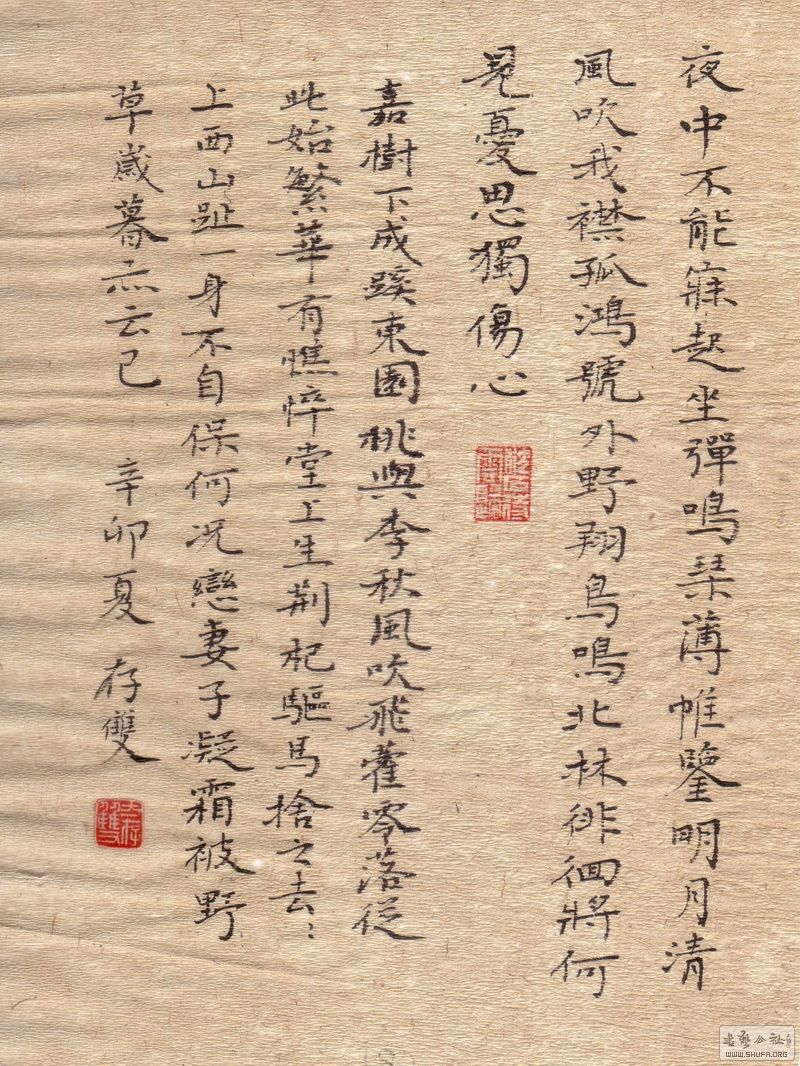 夜中不能寐起坐彈鳴琴薄帷鑒明月清
風吹我襟孤鴻號外野翔鳥鳴北林徘徊將何
見憂思獨傷心
嘉樹下成蹊東園桃與李秋風吹飛藿零落從
此始繁華有憔悴堂上生荆杞驅馬捨之去〻
上西山趾一身不自保何況戀妻子凝霜被野
草歲暮亦云已
辛卯夏 存雙
存雙
WWW.SHUFA.ORG